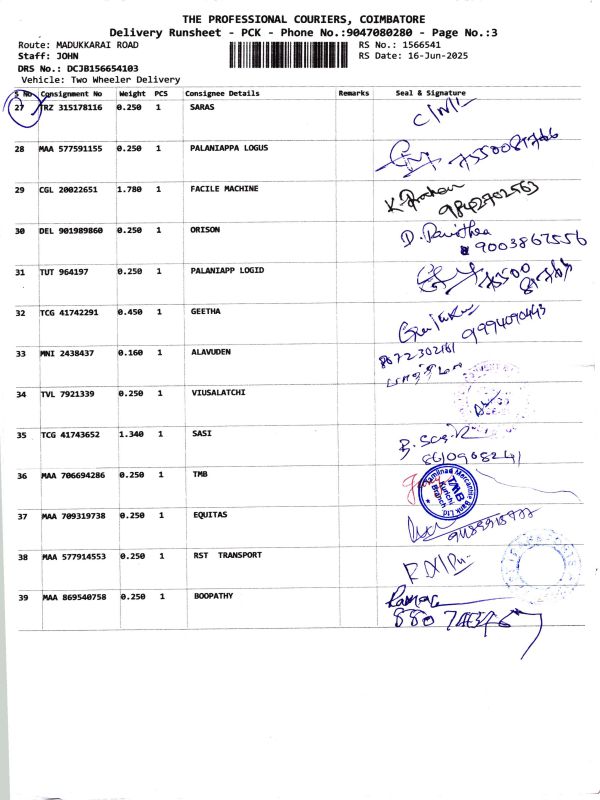 THE PROFESSIONAL COURIERS, COIMBATORE
Delivery Runsheet - PCK - Phone No.:9047080280 - Page No.:3
Route: MADUKKARAI ROAD RS No.: 1566541
Staff: JOHN RS Date: 16-Jun-2025
DRS No.: DCJB156654103
Vehicle: Two Wheeler Delivery
S No Consignment No Weight PCS Consignee Details Remarks Seal & Signature
27 TRZ 315178116 0.250 1 SARAS
28 MAA 577591155 0.250 1 PALANIAPPA LOGUS
29 CGL 20022651 1.780 1 FACILE MACHINE
9842702563
30 DEL 901989860 0.250 1 ORISON
9003867556
31 TUT 964197 0.250 1 PALANIAPP LOGID
32 TCG 41742291 0.450 1 GEETHA
9994090443
33 MNI 2438437 0.160 1 ALAVUDEN
34 TVL 7921339 0.250 1 VIUSALATCHI
35 TCG 41743652 1.340 1 SASI
8610908241
36 MAA 706694286 0.250 1 TMB
Tamilnad Mercantile Bank Ltd
TMB
Kurichi
Branch
37 MAA 709319738 0.250 1 EQUITAS
38 MAA 577914553 0.250 1 RST TRANSPORT
39 MAA 869540758 0.250 1 BOOPATHY